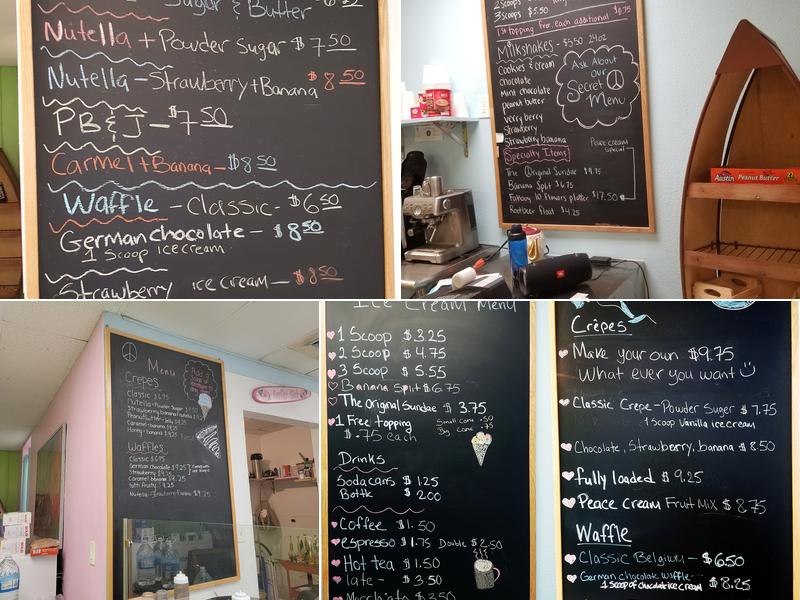 Sugar & Butter
Nutella + Powder Sugar $7.50
Nutella - Strawberry + Banana $8.50
PB & J - $7.50
Carmel + Banana - $8.50
Waffle - Classic - $6.50
German chocolate - $8.50
1 Scoop ice cream
Strawberry ice cream - $8.50
2 Scoops
3 Scoops $5.50
1st topping free, each additional $0.75
Milkshakes - $5.50 24oz
Cookies & cream
chocolate
Mint chocolate
peanut butter
verry berry
Strawberry
Strawberry banana
Ask About
our
Secret
Menu
Specialty Items
Peace cream
Special
The Original Sundae $4.75
Banana Split $6.75
flavors platter $17.50
Rootbeer float $4.25
Austin Peanut Butter
JBL
Menu
Crepes
Classic $6.75
Waffles
Classic $6.75
German chocolate $9.25
Strawberry $9.25
Caramel banana $9.25
tutti fruity $9.25
Nutella-Strawberry-Banana $9.25
Ice Cream Menu
1 Scoop $3.25
2 Scoop $4.75
3 Scoop $5.55
Banana Split $6.75
The Original Sundae $3.75
1 Free topping
$.75 each
Small Cone .50
Big Cone .75
Drinks
Soda cans $1.25
Bottle $2.00
Coffee $1.50
espresso $1.75 Double $2.50
Hot tea $1.50
late - $3.50
Macchiato $3.50
Crêpes
Make your own $9.75
What ever you want
Classic Crepe - Powder Suger $7.75
1 Scoop Vanilla ice cream
Chocolate, Strawberry, banana $8.50
fully loaded $9.25
Peace Cream Fruit Mix $8.75
Waffle
Classic Belgium - $6.50
German chocolate waffle - $8.25
1 Scoop of chocolate ice cream